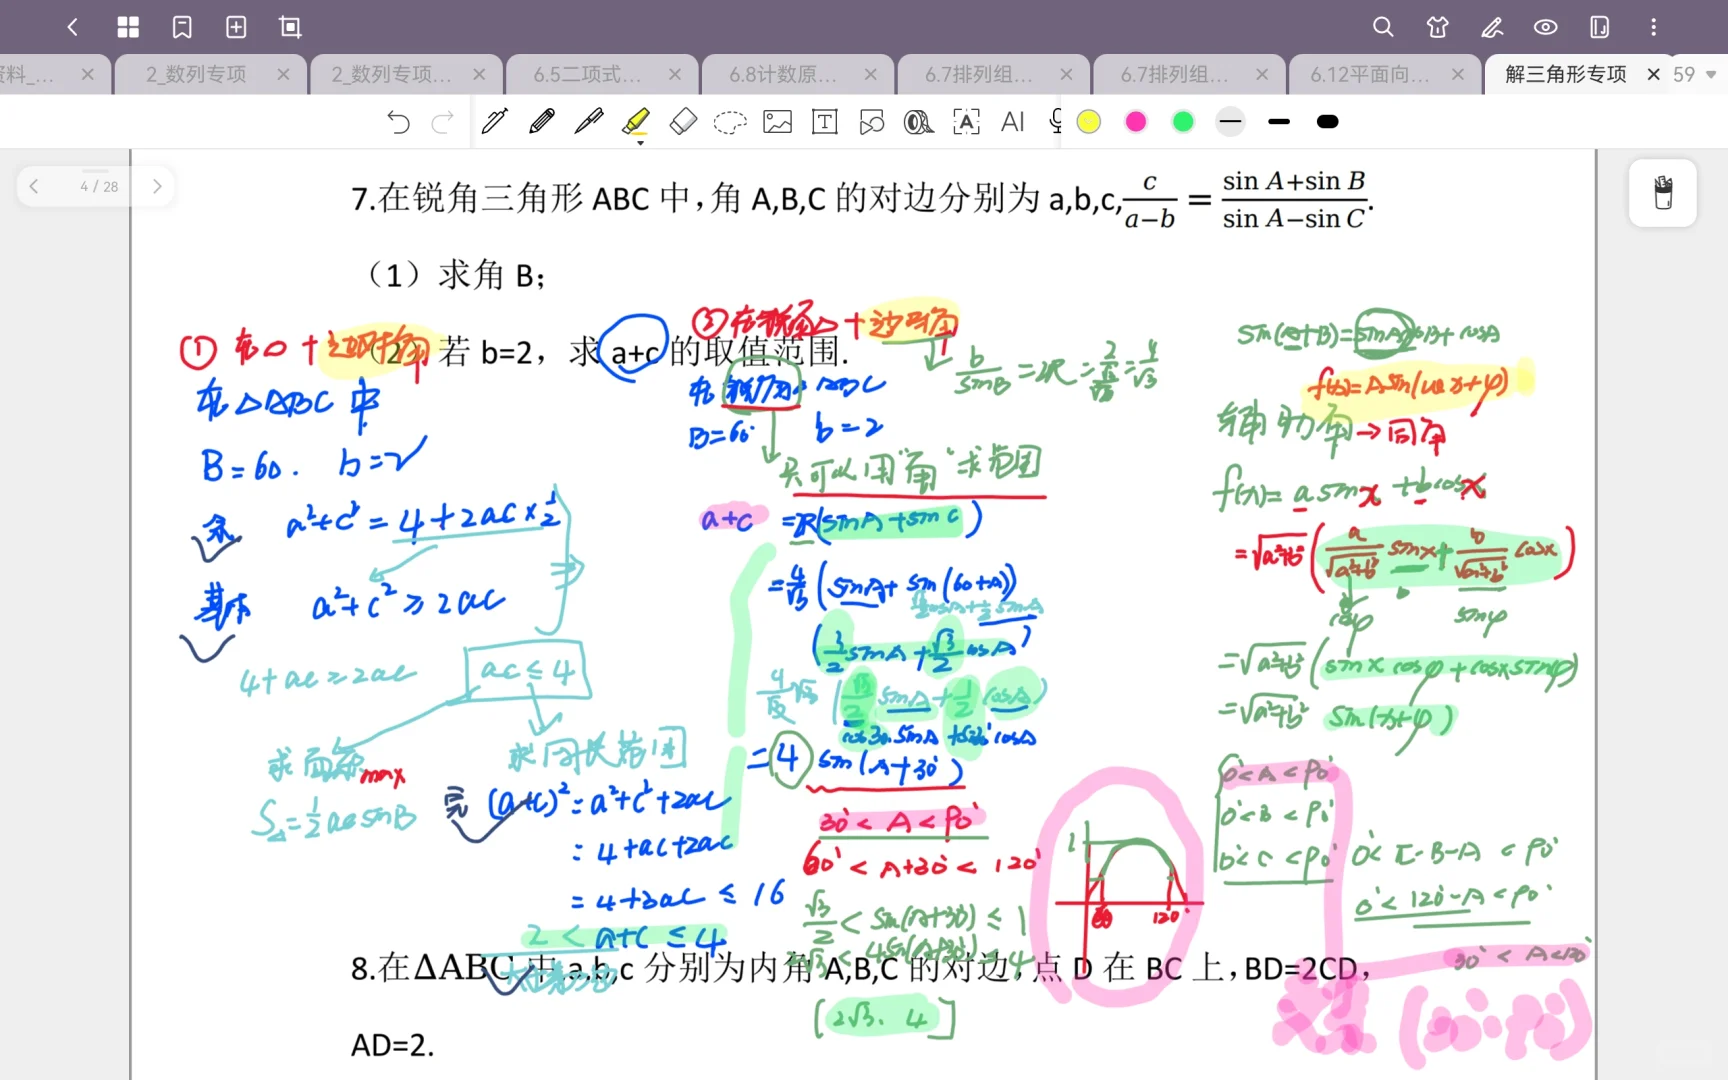 资料_...
2_数列专项
2_数列专项...
6.5二项式...
6.8计数原...
6.7排列组...
6.7排列组...
6.12平面向...
解三角形专项
59
AI
4 / 28
7.在锐角三角形 ABC 中,角 A,B,C 的对边分别为 a,b,c, c/(a−b) = (sin A+sin B)/(sin A−sin C).
（1）求角 B；
（2）若 b=2，求 a+c 的取值范围.
①
在△ABC 中
B=60. b=2
余 a²+c² = 4+2ac×1/2
基本 a²+c² ≥ 2ac
4+ac ≥ 2ac
ac ≤ 4
求面积max
求周长范围
S△=1/2 acsinB
(a+c)² = a²+c²+2ac
= 4+ac+2ac
= 4+3ac ≤ 16
2 < a+c ≤ 4
② 在锐角△+边对角
b/sinB = 2R = 2/(√3/2) = 4/√3
在锐角△ABC
B=60° b=2
只可以用"角"求范围
a+c = 2R(sinA+sinC)
= 4/√3 (sinA+sin(60+A))
√3/2 cosA+1/2 sinA
(3/2 sinA+√3/2 cosA)
4/√3 √3 (√3/2 sinA+1/2 cosA)
cos30°sinA+sin30°cosA
= 4 sin(A+30°)
30°<A<90°
60°<A+30°<120°
√3/2 < sin(A+30°) ≤ 1
2√3 < 4sin(A+30°) ≤ 4
[2√3, 4]
1
60
120°
f(x)=Asin(ωx+φ)
辅助角→同角
f(x)= a sinx + b cosx
=√a²+b² (a/√a²+b² sinx + b/√a²+b² cosx)
cosφ sinφ
=√a²+b² (sinx cosφ+cosx sinφ)
=√a²+b² sin(x+φ)
0°<A<90°
0°<B<90°
0°<C<90°
0°<π-B-A<90°
0°<120°-A<90°
30°<A<120°
(30°, 90°)
8.在ΔABC 中 a,b,c 分别为内角 A,B,C 的对边,点 D 在 BC 上,BD=2CD,
AD=2.